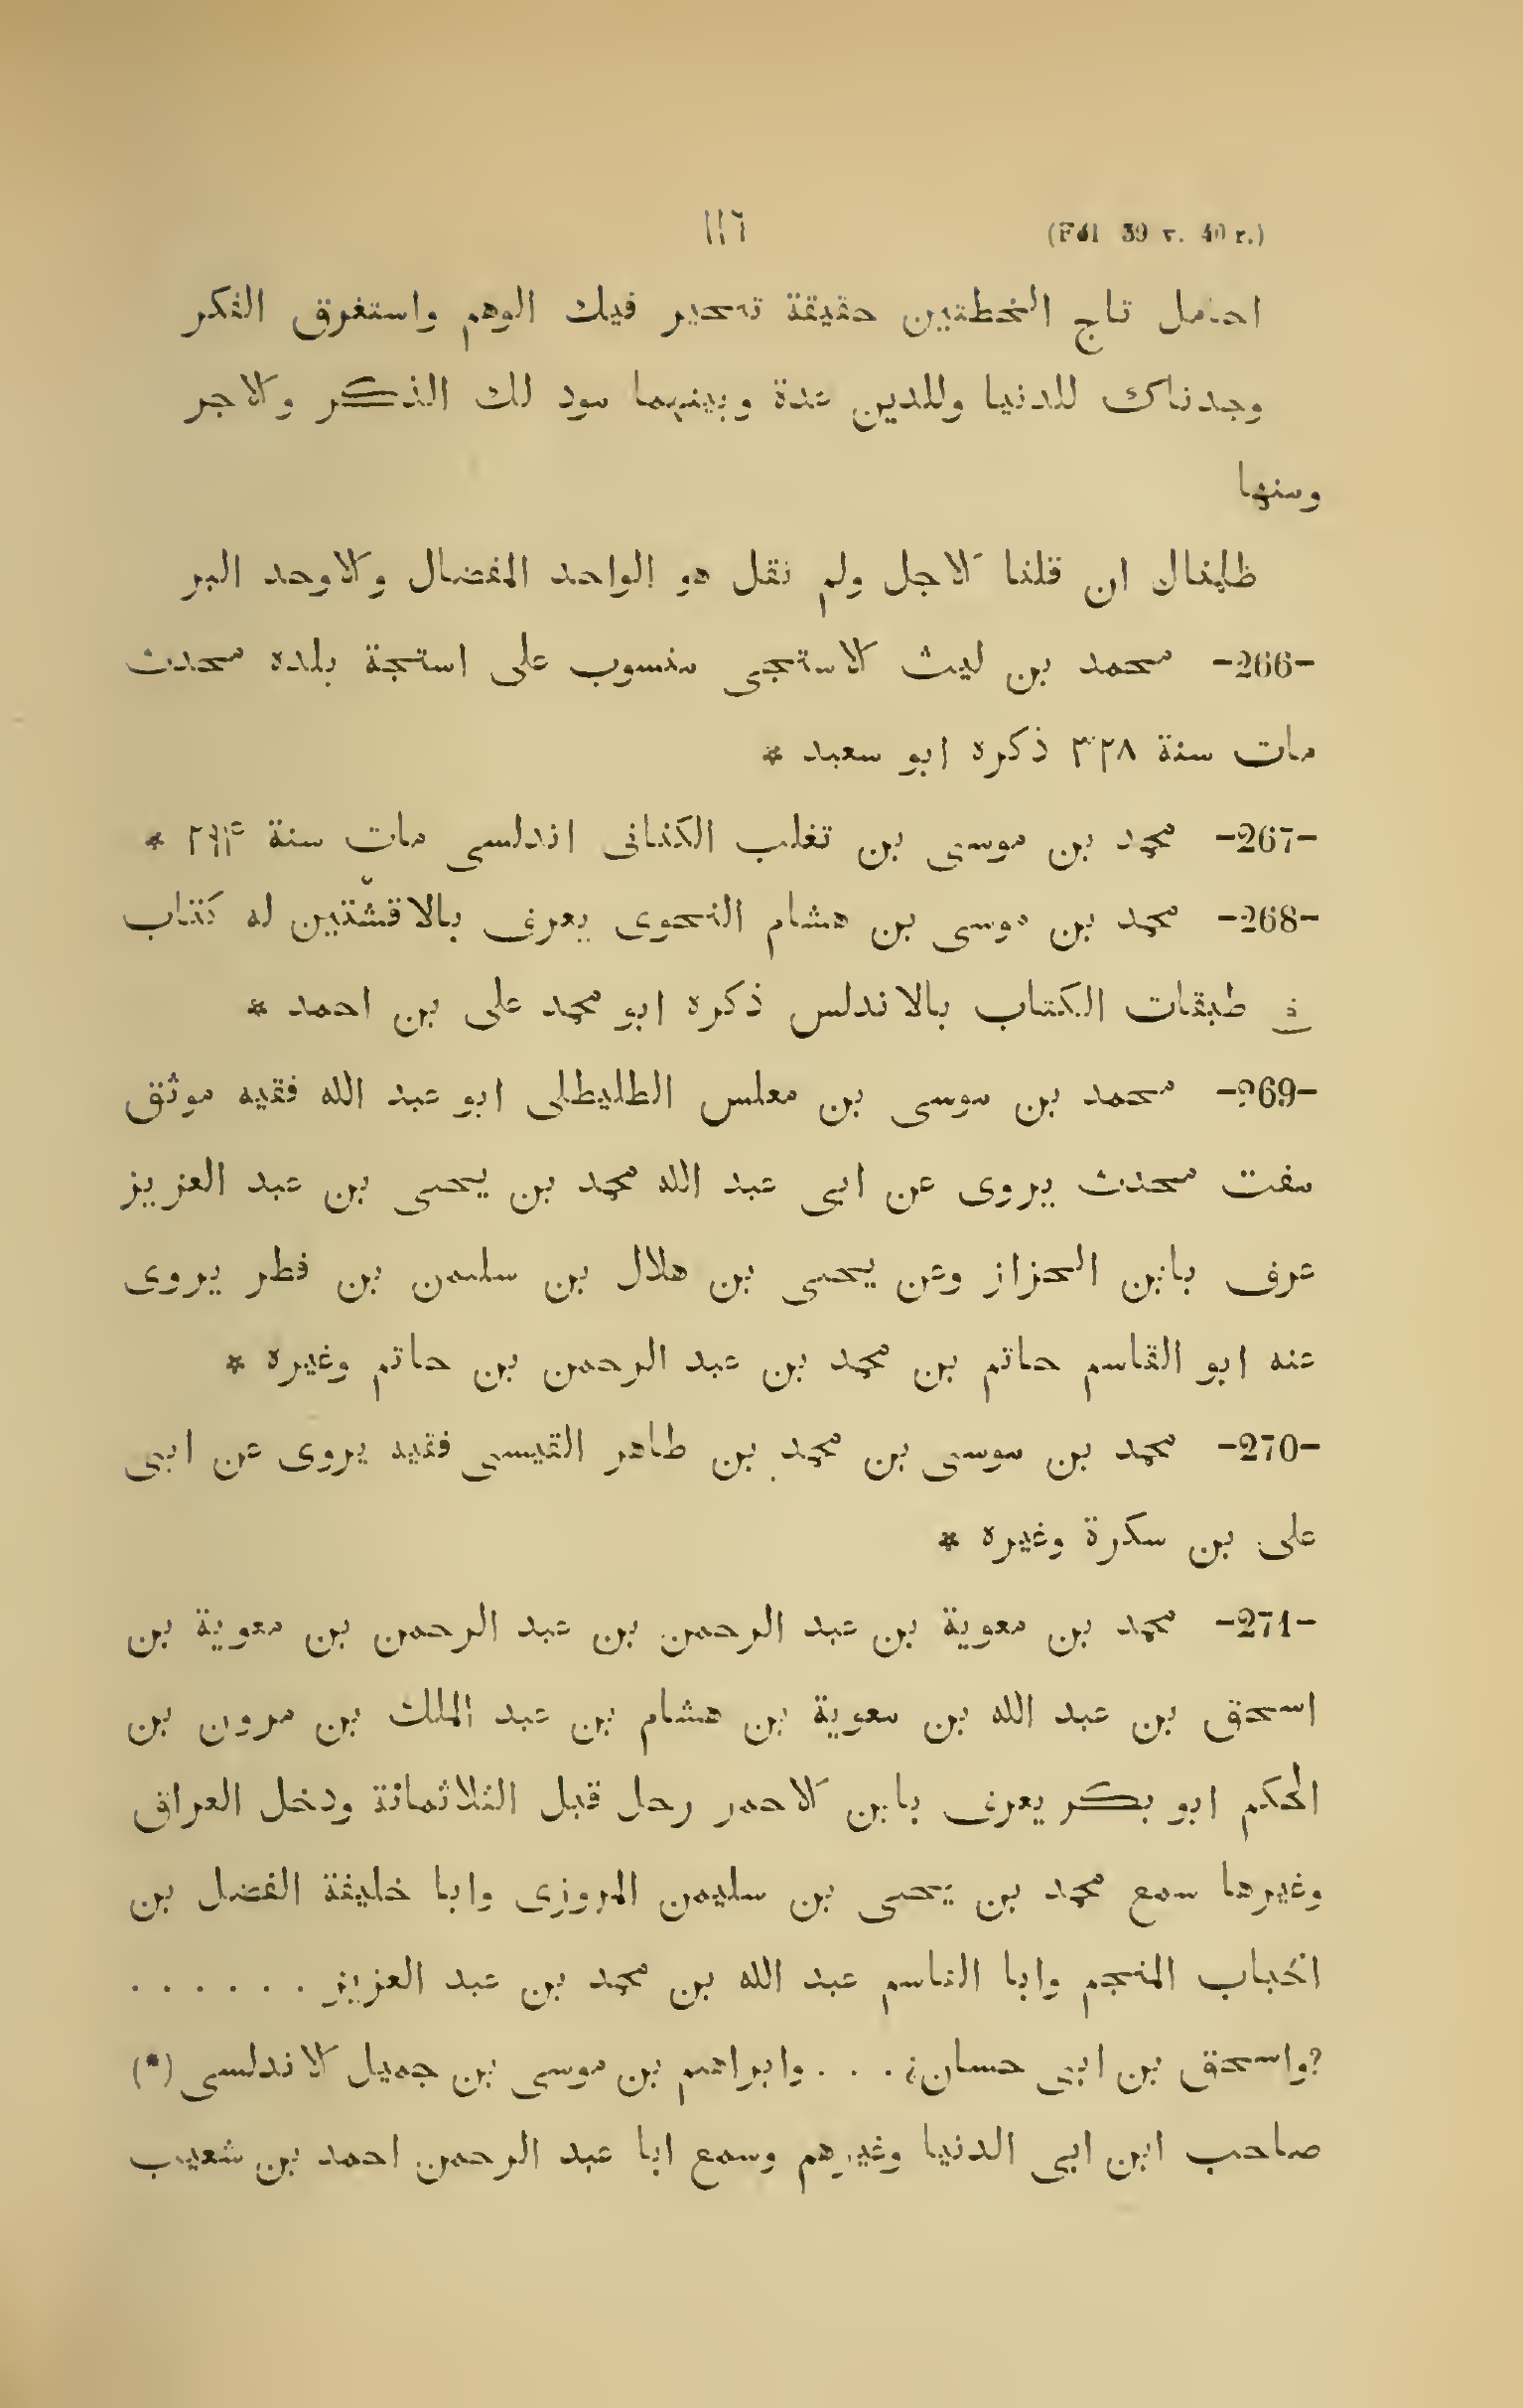 (Fol 39 v. 40 r.) ١١٦
احامل تاج الخطتين حقيقة تحير فيك الوهم واستغرق الفكر
وجدناك للدنيا وللدين عدة وبينهما سود لك الذكر والاجر
ومنها
ظلمناك ان قلنا الاجل ولم نقل هو الواحد المفضال والاوحد البر
-266- محمد بن ليث الاستجى منسوب على استجة بلده محدث
مات سنة ٣٢٨ ذكره ابو سعيد *
-267- محمد بن موسى بن تغلب الكنانى اندلسى مات سنة *
-268- محمد بن موسى بن هشام النحوى يعرف بالاقشتين له كتاب
فى طبقات الكتاب بالاندلس ذكره ابو محمد على بن احمد *
-269- محمد بن موسى بن معلس الطليطلى ابو عبد الله فقيه موثق
مفت محدث يروى عن ابى عبد الله محمد بن يحيى بن عبد العزيز
عرف بابن الحزاز وعن يحيى بن هلال بن سليمن بن فطر يروى
عنه ابو القاسم حاتم بن محمد بن عبد الرحمن بن حاتم وغيره *
-270- محمد بن موسى بن محمد بن طاهر القيسى فقيه يروى عن ابى
على بن سكرة وغيره *
-271- محمد بن معوية بن عبد الرحمن بن عبد الرحمن بن معوية بن
اسحق بن عبد الله بن معوية بن هشام بن عبد الملك بن مرون بن
الحكم ابو بكر يعرف بابن الاحمر رحل قبل الثلاثمائة ودخل العراق
وغيرها سمع محمد بن يحيى بن سليمن المروزى وابا خليفة الفضل بن
الخباب المنجم وابا القاسم عبد الله بن محمد بن عبد العزيز . . . . . .
?واسحق بن ابى حسان¿ . . . وابراهيم بن موسى بن جميل الاندلسى (*)
صاحب ابن ابى الدنيا وغيرهم وسمع ابا عبد الرحمن احمد بن شعيب